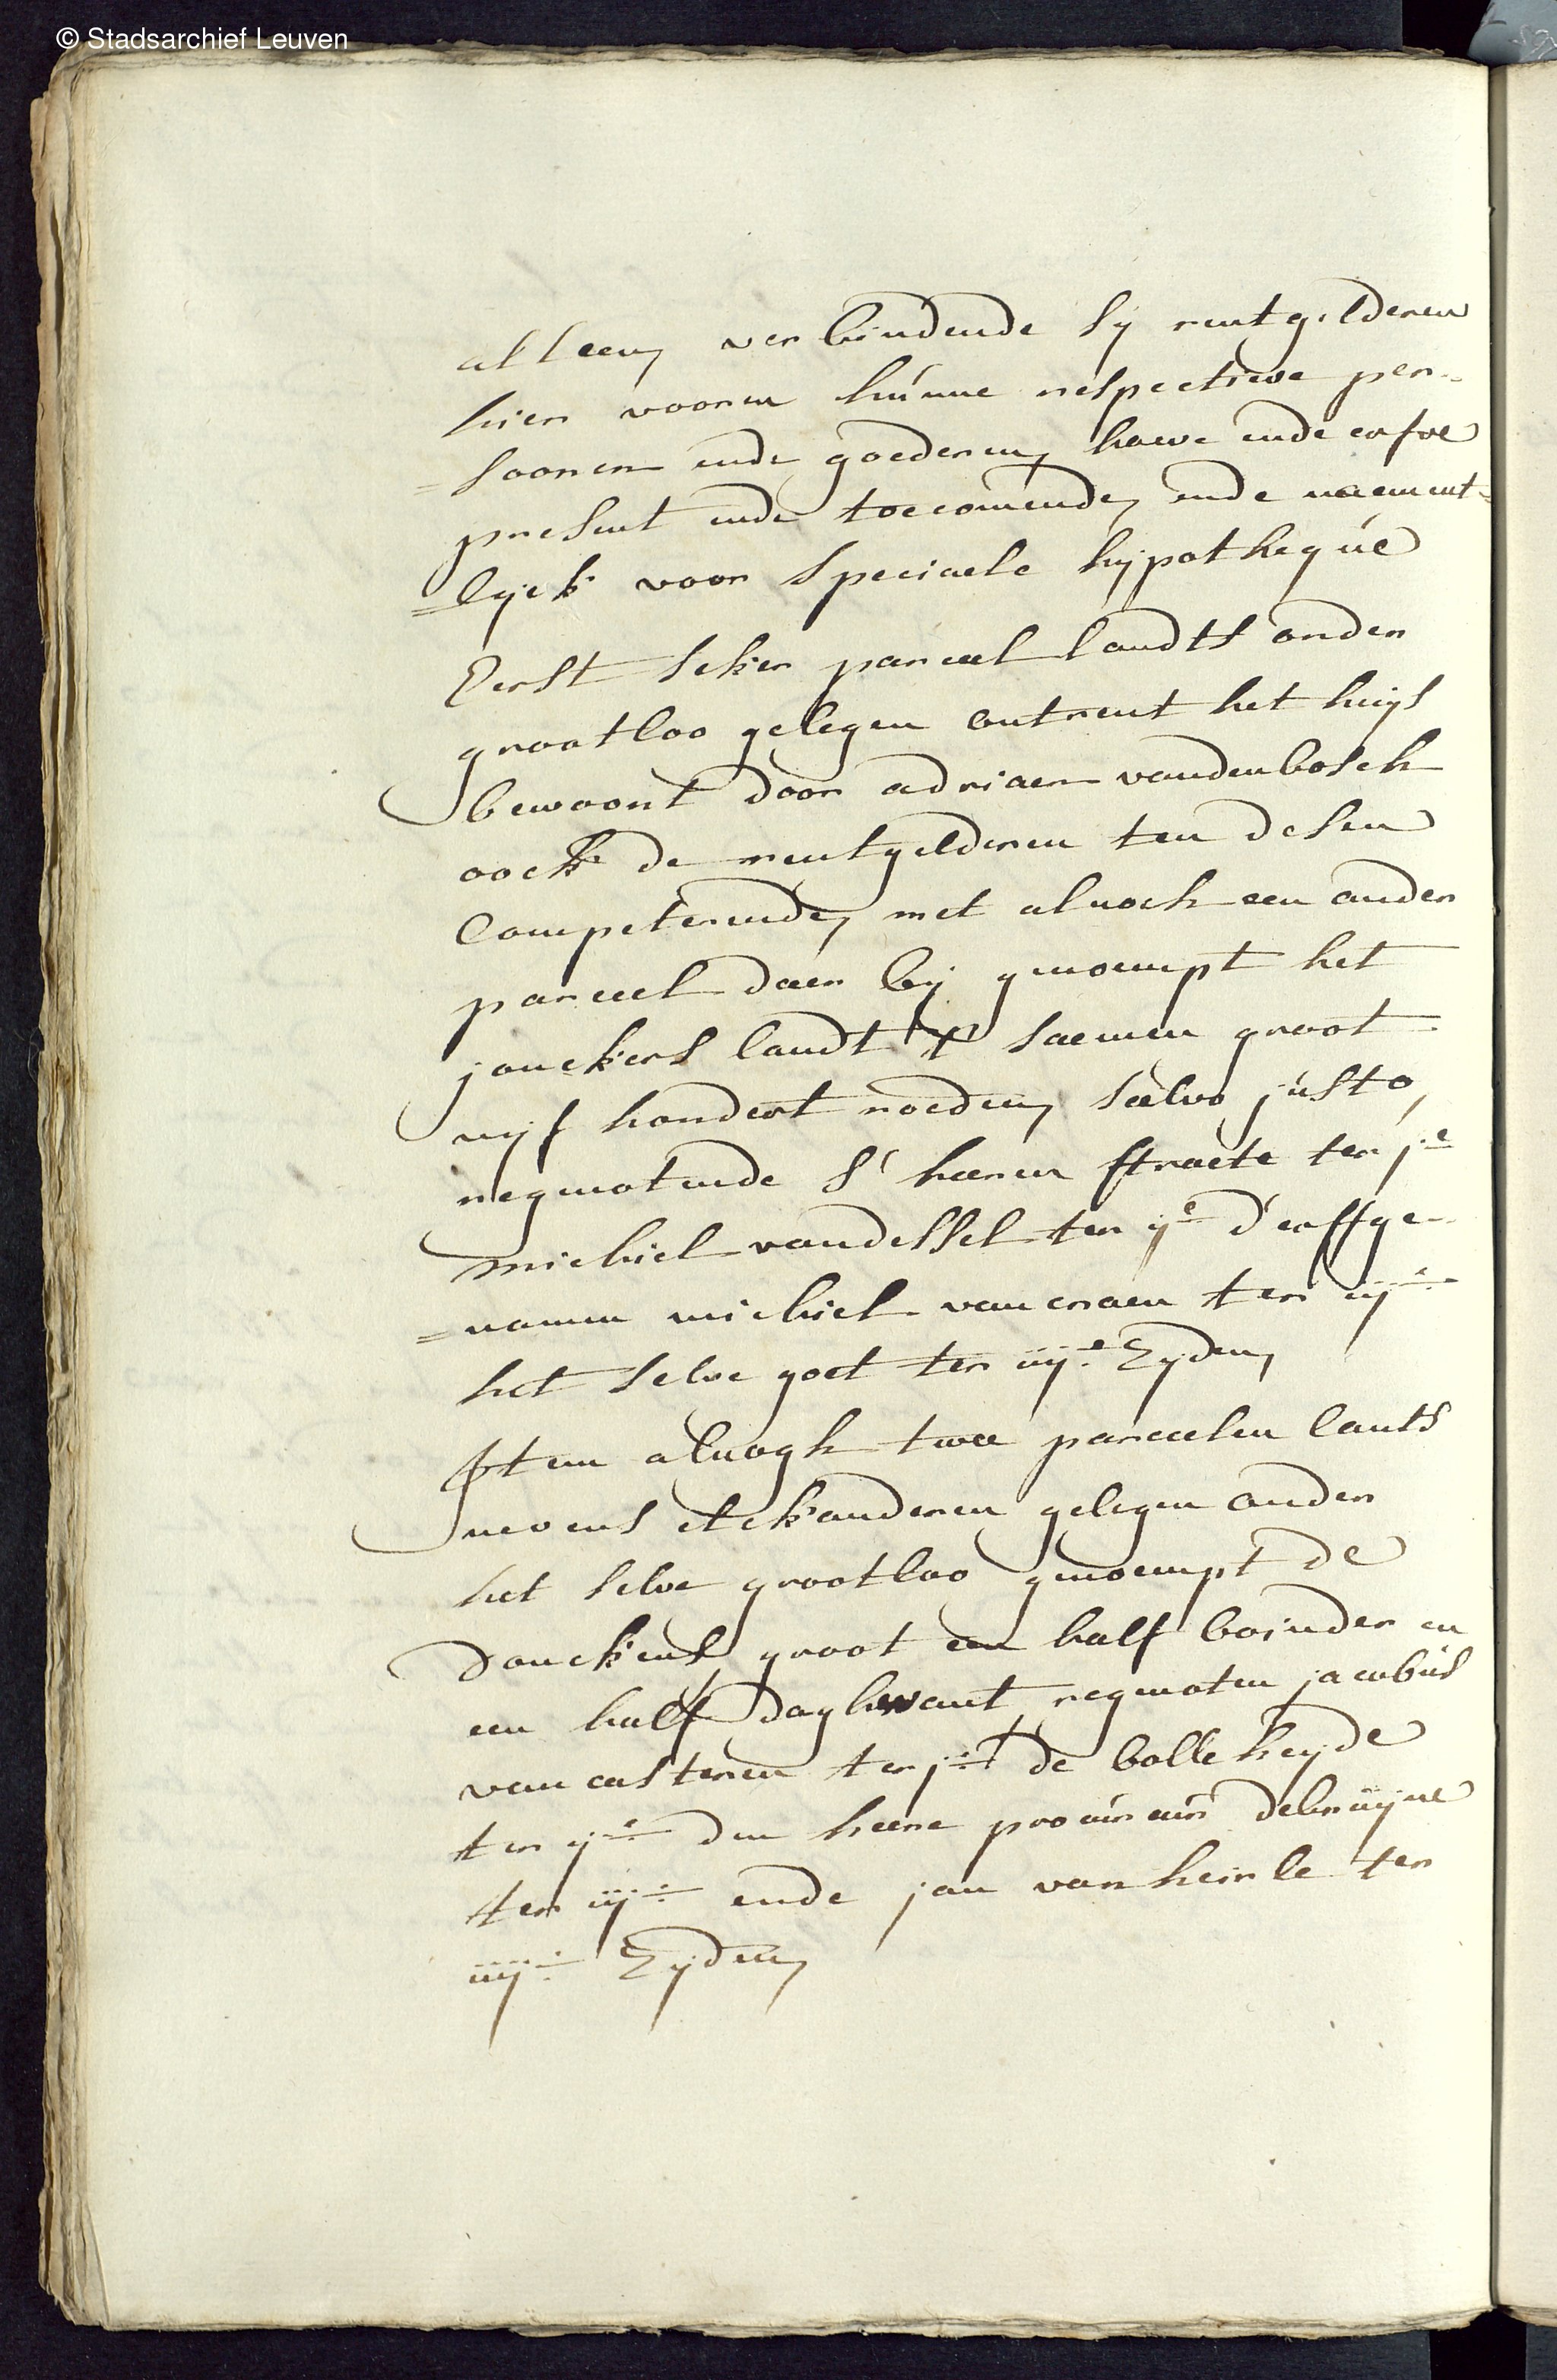 © Stadsarchief Leuven
alleen verbindende sij rentgelderen
hier vooren hunne respectieve per=
=soonen ende goederen, have ende erfve
present ende toecomende, ende naement=
=lijck voor speciaele hijpotheque
Eerst seker parceel landts onder
grootloo gelegen ontrent het huijs
bewoont door adriaen vandenbosch
oock de rentgelderen ten desen
Competerende, met alnoch een ander
parceel daer bij genoempt het
jonckers landt saemen groot
vijf hondert roeden, salvo justo,
regenotende s'heeren straete ter je
michiel vandessel ter ije d'erffge=
=namen michiel van craen ter iije
het selve goet ter iiije Zijden,
Item alnogh twee parceelen lants
nevens elckanderen gelegen onder
het selve grootloo genoempt de
donckens groot een half boinder en
een half daghwant regenoten jacobus
van casteren ter je de bolle heijde
ter ije den heere procureur debruijne
ter iije ende jan van heirle ter
iiije Zijden,